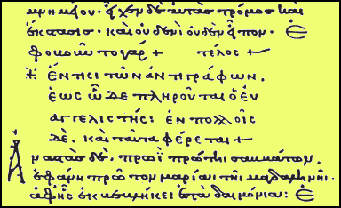 μνημείου· εἶχεν δὲ αὐτὰς τρόμος καὶ
ἔκστασις· καὶ οὐδενὶ οὐδὲν εἶπον· Ἐ
φοβοῦντο γάρ + τέλος +
ἔν τισι τῶν ἀντιγράφων.
ἕως ὧδε πληροῦται ὁ εὐ
αγγελιστής: ἐν πολλοῖς
δὲ. καὶ ταῦτα φέρεται +
Ἀναστὰς δὲ. πρωῒ πρώτῃ σαββάτου.
ἐφάνη πρῶτον μαρίαι τῇ μαγδαληνῆι.
ἀφ' ἧς ἐκβεβλήκει ἑπτὰ δαιμόνια: Ἐ